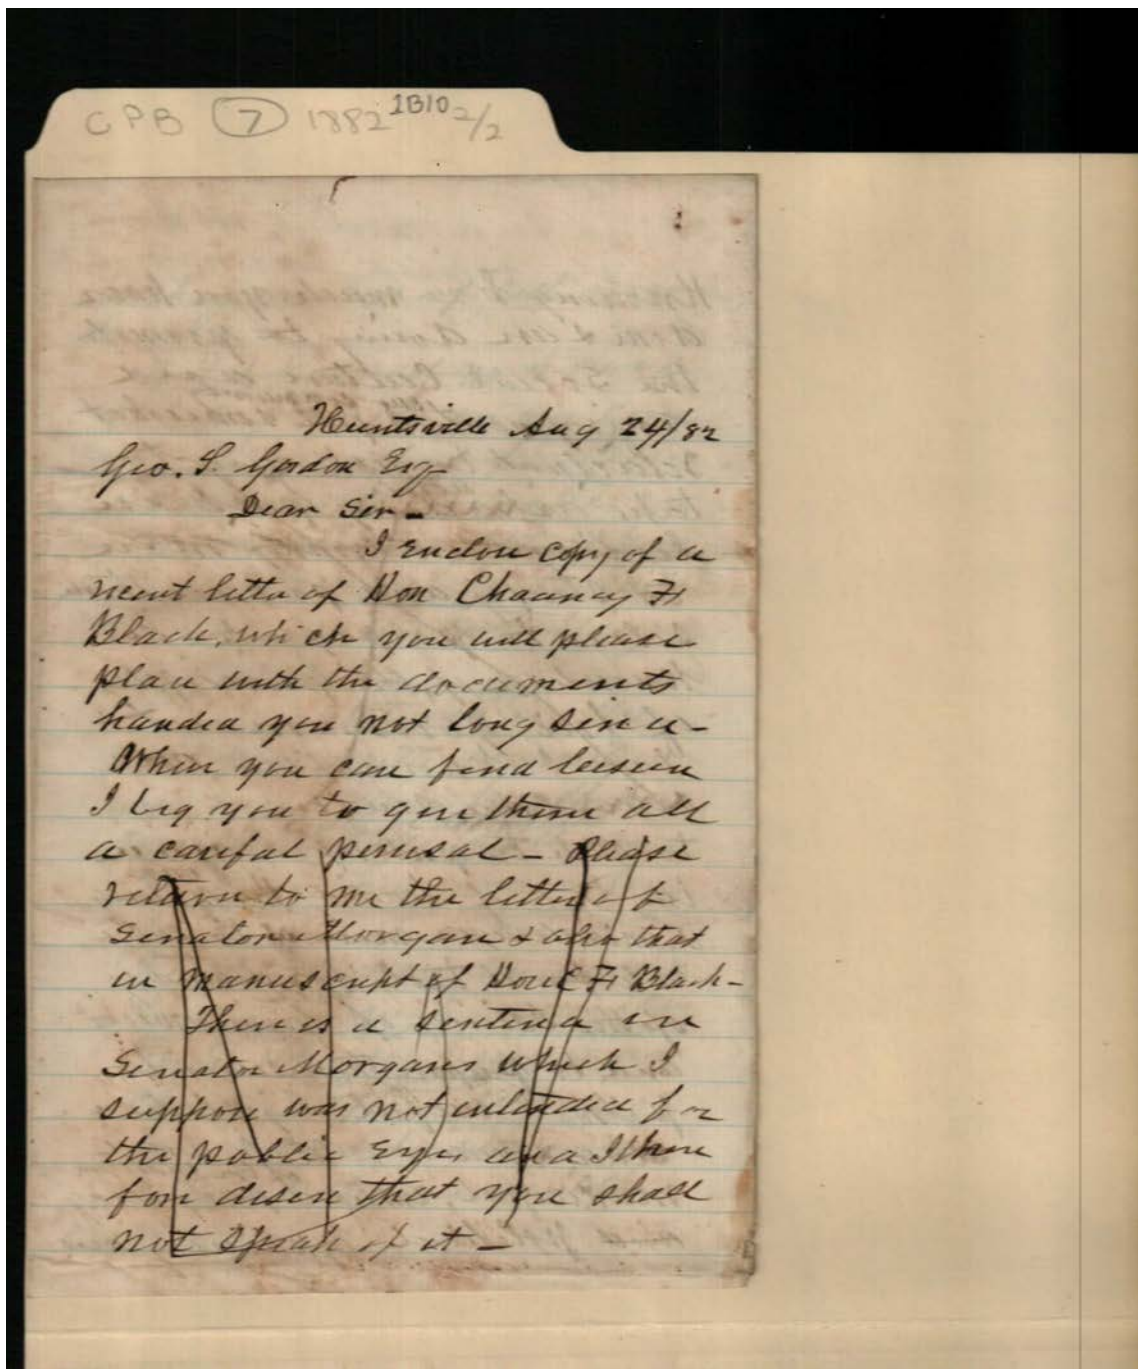 CPB 7 1882 1B10 2/2
Huntsville Aug 24/82
Geo. S. Gordon Esq
Dear Sir -
I enclose copy of a
recent letter of Hon Chauncey F.
Black, which you will please
place with the documents
handed you not long since -
When you can find leisure
I beg you to give them all
a careful perusal - Please
return to me the letter of
Senator Morgan & also that
in manuscript of Hon C F. Black -
There is a sentence in
Senator Morgans which I
suppose was not intended for
the public Eye, and I there
fore desire that you shall
not speak of it -